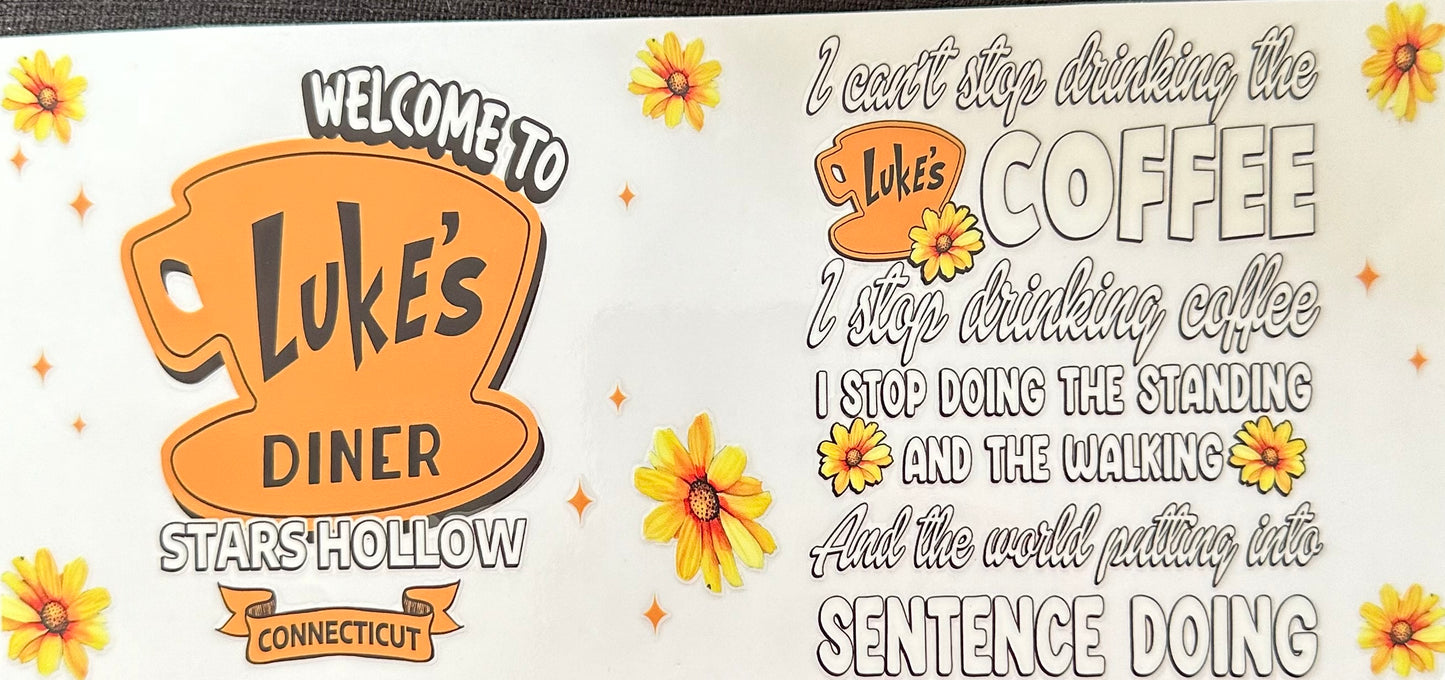 WELCOME TO
LUKE'S
DINER
STARS HOLLOW
CONNECTICUT
I can't stop drinking the
LUKE'S COFFEE
I stop drinking coffee
I STOP DOING THE STANDING
AND THE WALKING
And the world putting into
SENTENCE DOING